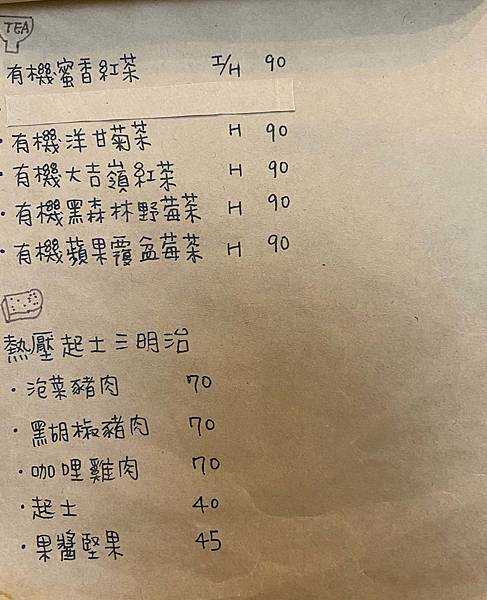 TEA
有機蜜香紅茶 I/H 90
・有機洋甘菊茶 H 90
・有機大吉嶺紅茶 H 90
・有機黑森林野莓茶 H 90
・有機蘋果覆盆莓茶 H 90
熱壓起士三明治
・泡菜豬肉 70
・黑胡椒豬肉 70
・咖哩雞肉 70
・起士 40
・果醬堅果 45